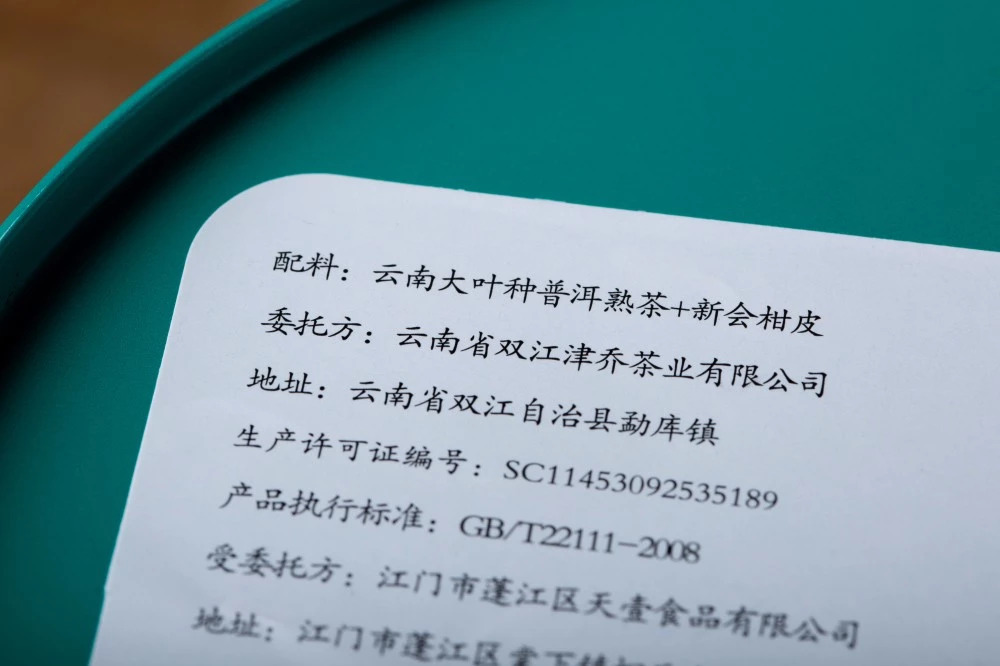 配料：云南大叶种普洱熟茶+新会柑皮
委托方：云南省双江津乔茶业有限公司
地址：云南省双江自治县勐库镇
生产许可证编号：SC11453092535189
产品执行标准：GB/T22111-2008
受委托方：江门市蓬江区天壹食品有限公司
地址：江门市蓬江区棠下镇